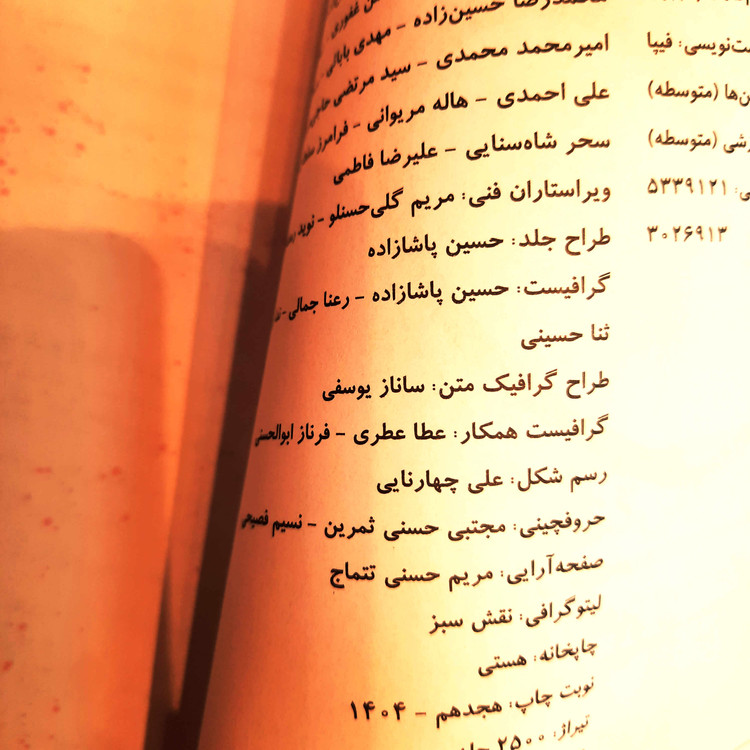 محمدرضا حسین‌زاده – مهدی بابائی
امیرمحمد محمدی – سید مرتضی
علی احمدی – هاله مریوانی – فرامرز
سحر شاه‌سنایی – علیرضا فاطمی
ویراستاران فنی: مریم گلی‌حسنلو – نوید
طراح جلد: حسین پاشازاده
گرافیست: حسین پاشازاده – رعنا جمالی –
ثنا حسینی
طراح گرافیک متن: ساناز یوسفی
گرافیست همکار: عطا عطری – فرناز ابوالحسنی
رسم شکل: علی چهارنایی
حروفچینی: مجتبی حسنی ثمرین – نسیم فصیحی
صفحه‌آرایی: مریم حسنی تتماج
لیتوگرافی: نقش سبز
چاپخانه: هستی
نوبت چاپ: هجدهم – ۱۴۰۴
تیراژ: ۲۵۰۰
ت‌نویسی: فیپا
ن‌ها (متوسطه)
زشی (متوسطه)
۵۳۳۹۱۲۱
۳۰۲۶۹۱۳